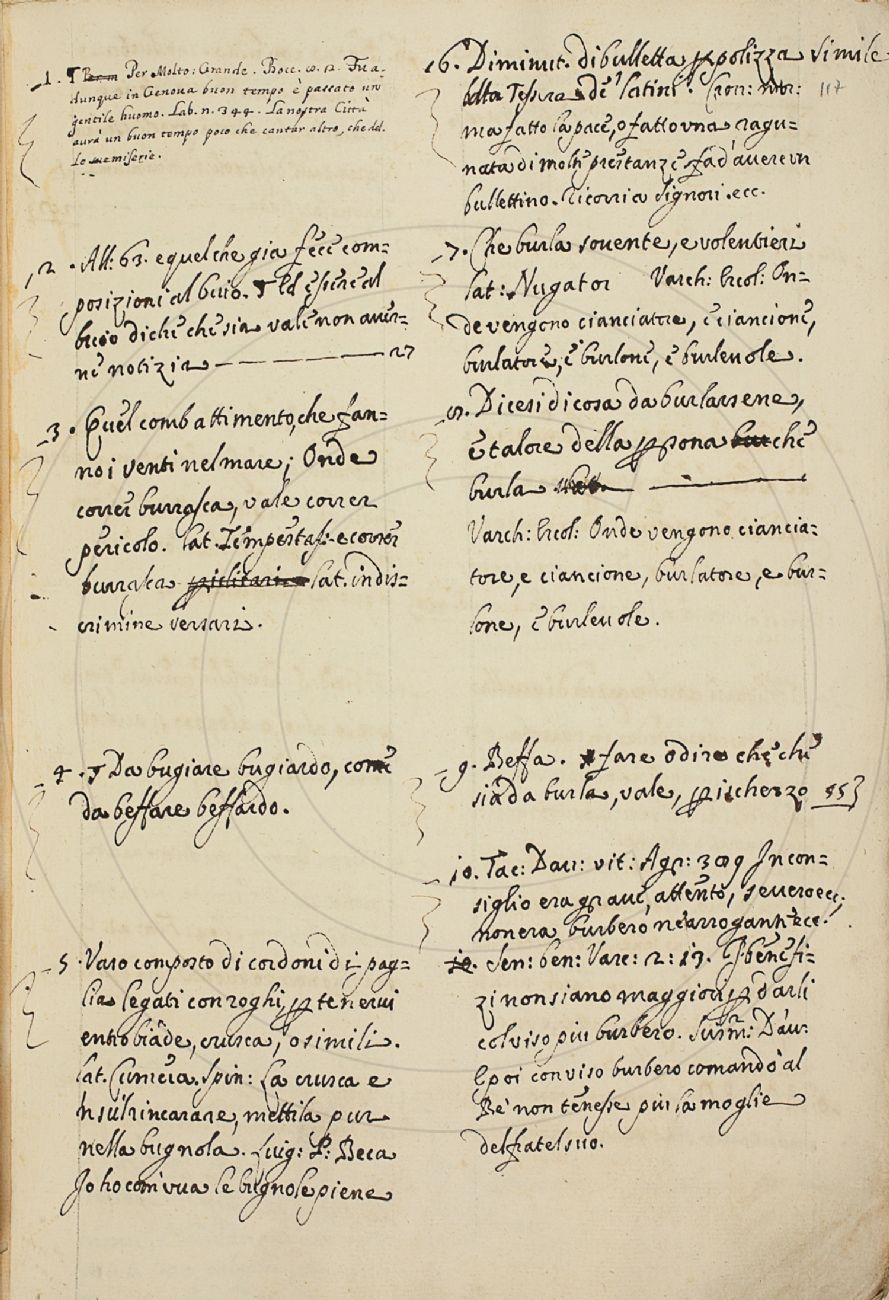 1. ¶ Per Molto: Grande. Bocc. n. 2. Fu a-
dunque in Genova buon tempo è passato un
gentile huomo. Lab. n. 344. La nostra Città
avrà un buon tempo poco che cantar altro, che del-
le sue miserie.
2. All: 63. e quel che gia fece com=
posizioni al buio. ¶ Ed essere al
buio di che che sia vale non aver-
ne notizia 27
3. Quel combattimento, che fan=
no i venti nel mare; Onde
correr burrasca, vale correr
pericolo. lat. Tempestas. e correr
burrasca lat. in dis=
crimine versari.
4. ¶ Da bugiare bugiardo, come
da beffare beffardo.
5. Vaso composto di cordoni di pag=
lia legati con roghi, p tenervi
entro biade, crusca, o simili.
lat. Cumera. Spin: La crusca e
in sul rincarare, mettila pur
nella bugnola. Luig: P: Beca
Io ho com'una le bugnole piene
6. Diminut. di bulletta p polizza simile
alla Tessera de' latini. Cron: Mor:
117
ma fatto la pace, o fatto una ragu=
nata di molte prestanze fa d'avere un
bullettino. Ricorri a Signori. ecc.
7. Che burla sovente, e volentieri
lat: Nugator Varch: Ercol: On=
de vengono cianciatore, e ciancione,
burlatore, e burlone, e burlevole.
8. Dicesi di cosa da burlarsene,
e talore della psona che
burla
Varch: Ercol: Onde vengono ciancia=
tore, e ciancione, burlatore, e bur=
lone, e burlevole.
9. Beffa. ¶ fare o dire che che
sia da burla, vale, p ischerzo 853
10. Tac: Dav: vit: Agr: 389 In con=
siglio era grave, attento, severo ecc,
non era burbero ne arrogante ecc.
10. Sen: ben: Varc: 2: 17. I benefi=
zi non siano maggiori p darli
col viso piu burbero. Scism: Dav:
E poi con viso burbero comandò al
Re non tenesse piu la moglie
del fratel suo.